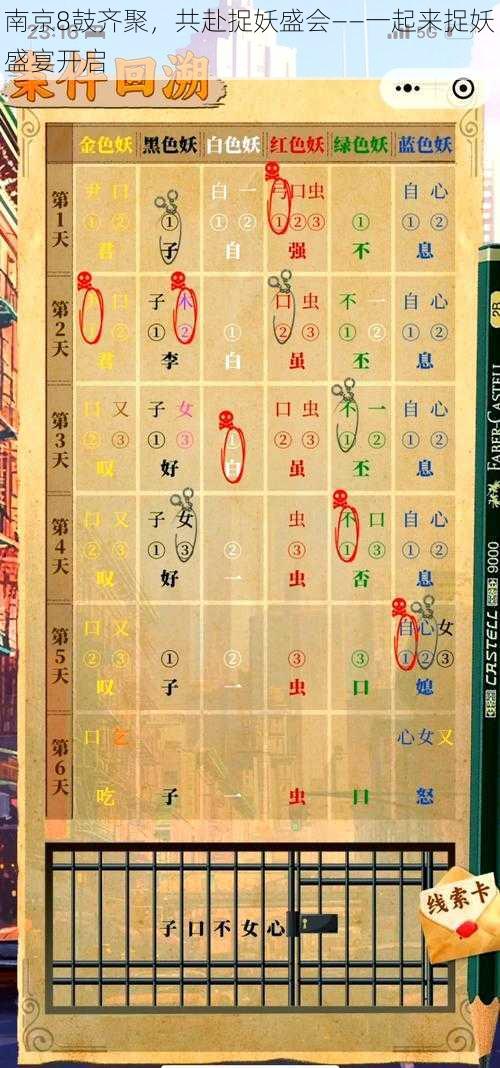 南京8鼓齐聚，共赴捉妖盛会——一起来捉妖
盛宴开启
案件回溯
金色妖 黑色妖 白色妖 红色妖 绿色妖 蓝色妖
第1天
尹 口 白 一 弓 口 虫 自 心
① ② ① ① ② ① ② ③ ① ① ②
君 子 自 强 不 息
第2天
口 子 木 口 虫 不 一 自 心
① ② ① ② ① ② ③ ① ② ① ②
君 李 白 虽 丕 息
第3天
口 又 子 女 口 虫 不 一 自 心
② ③ ① ③ ① ② ③ ① ② ① ②
叹 好 白 虽 丕 息
第4天
口 又 子 女 虫 不 口 自 心
② ③ ① ③ ② ③ ① ③ ① ②
叹 好 一 虫 否 息
第5天
口 又 自 心 女
② ③ ① ② ③ ③ ① ② ③
叹 子 一 虫 口 媳
第6天
口 乞 心 女 又
吃 子 一 虫 口 怒
子 口 不 女 心
线索卡
FABER-CASTELL
CASTELL 9000
2B